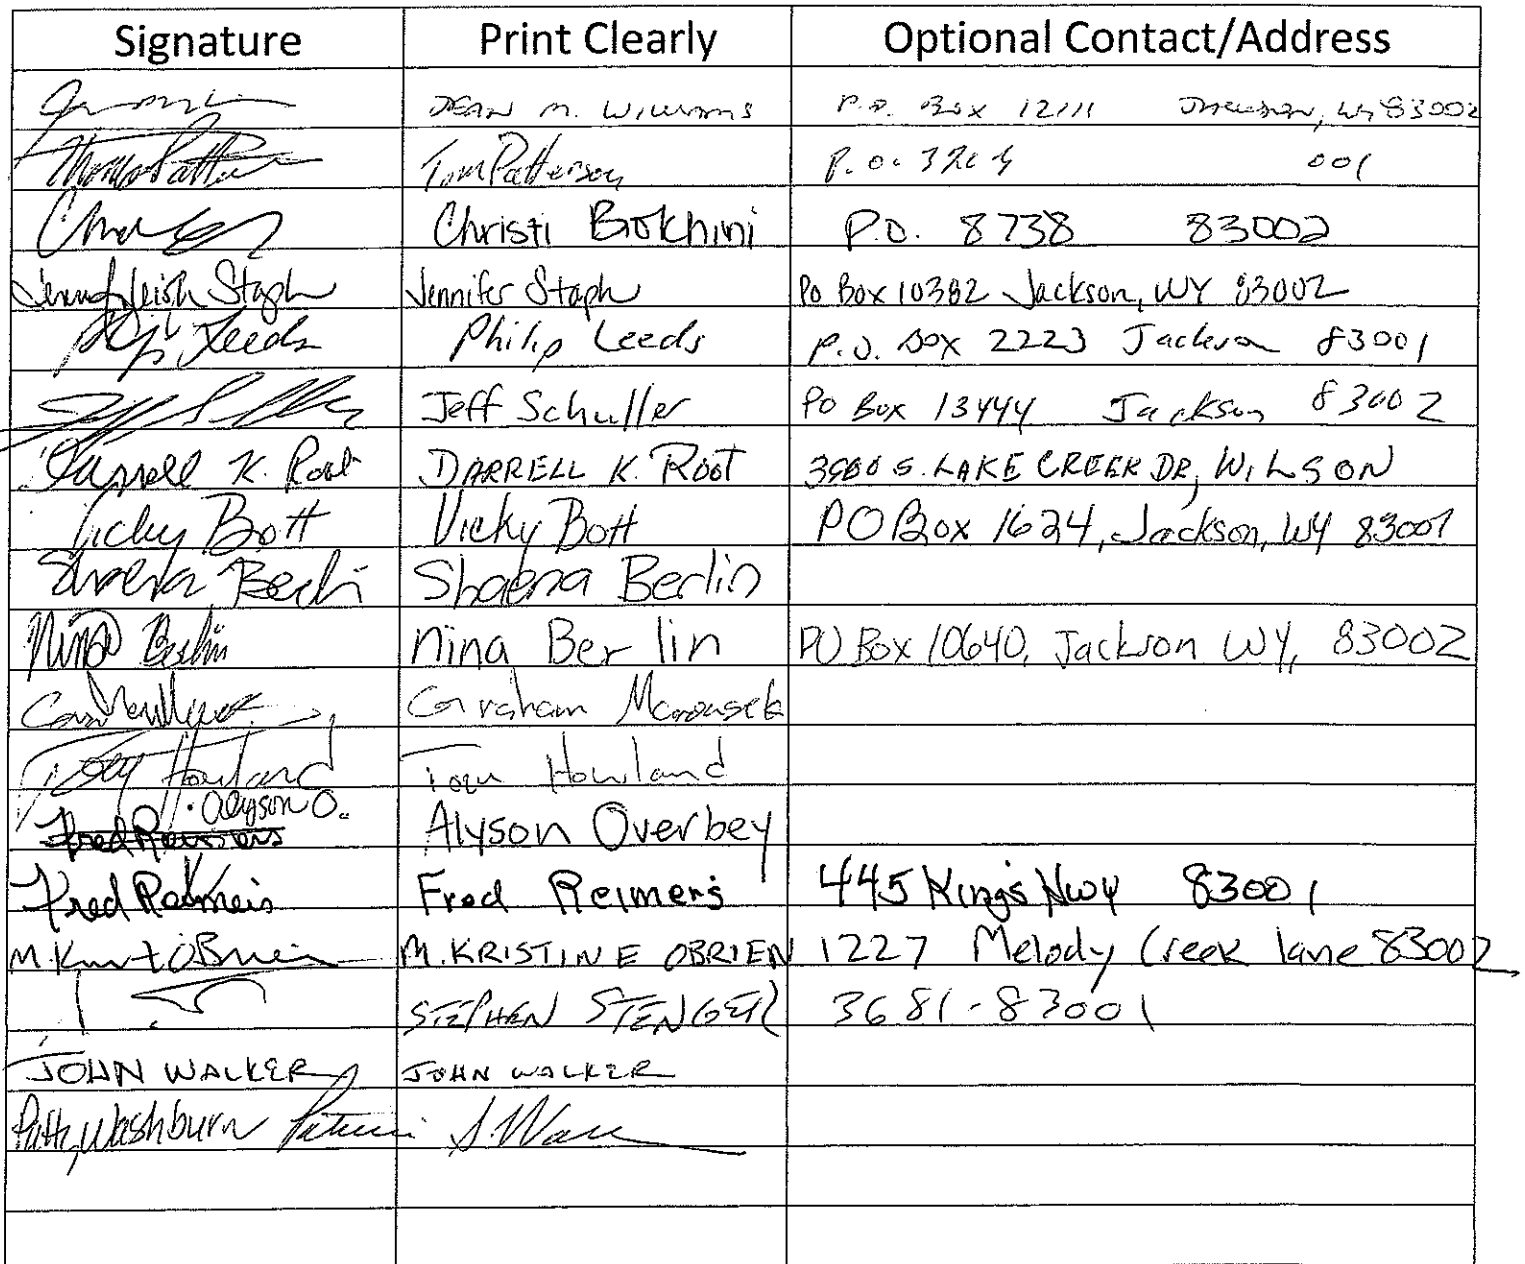 Signature Print Clearly Optional Contact/Address
DEAN M. WILLIAMS P.O. Box 12111 Jackson, WY 83002
Tom Patterson P.O. 001
Christi P.O. 8738 83002
Jennifer Staph Po Box 10382 Jackson, WY 83002
Leeds Philip Leeds P.O. Box 2223 Jackson 83001
Jeff Schuller Po Box 13444 Jackson 83002
Darrell K. Root DARRELL K. Root S. LAKE CREEK DR, WILSON
Vicky Bott Vicky Bott PO Box 1624, Jackson, WY 83001
Shaena Berlin
Nina Berlin nina Berlin PO Box 10640, Jackson WY, 83002
Graham
Howland Tom Howland
Fred Reimers Alyson O. Alyson Overbey
Fred Reimers Fred Reimers 445 King's Hwy 83001
M. O'Brien M. KRISTINE OBRIEN 1227 Melody Creek lane 83002
STEPHEN STENGER 3681-83001
JOHN WALKER JOHN WALKER
Patty Washburn